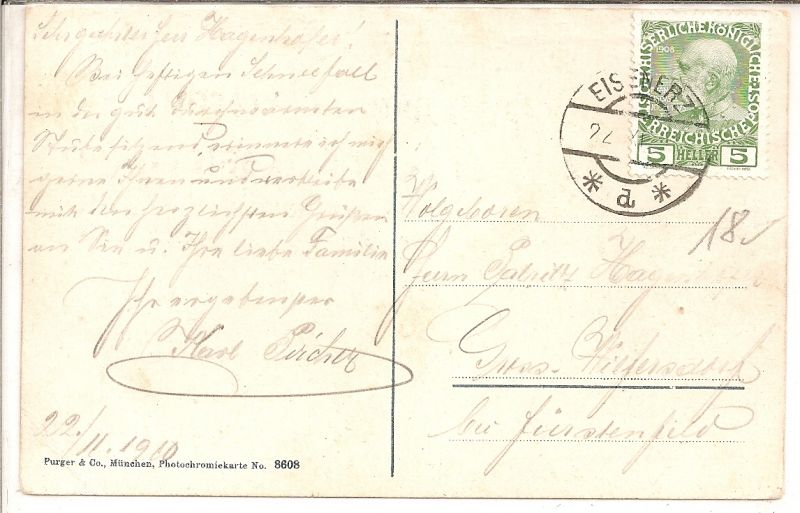 Sehr geehrter Herr Hagenhofer!
Bei heftigen Schneefall
in der gut durchwärmten
Stube sitzend, erinnere ich mich
gerne Ihrer und verbleibe
mit den herzlichsten Grüßen
an Sie u. Ihre liebe Familie
Ihr ergebenster
Karl Pircher
22./11. 1910
Purger & Co., München, Photochromiekarte No. 8608
1908
KAISERLICHE KÖNIGLICHE
ÖSTERREICHISCHE
5 HELLER 5
EISENERZ
22
* a *
18
Herrn Hagenhofer
Gross-Wilfersdorf
bei Fürstenfeld